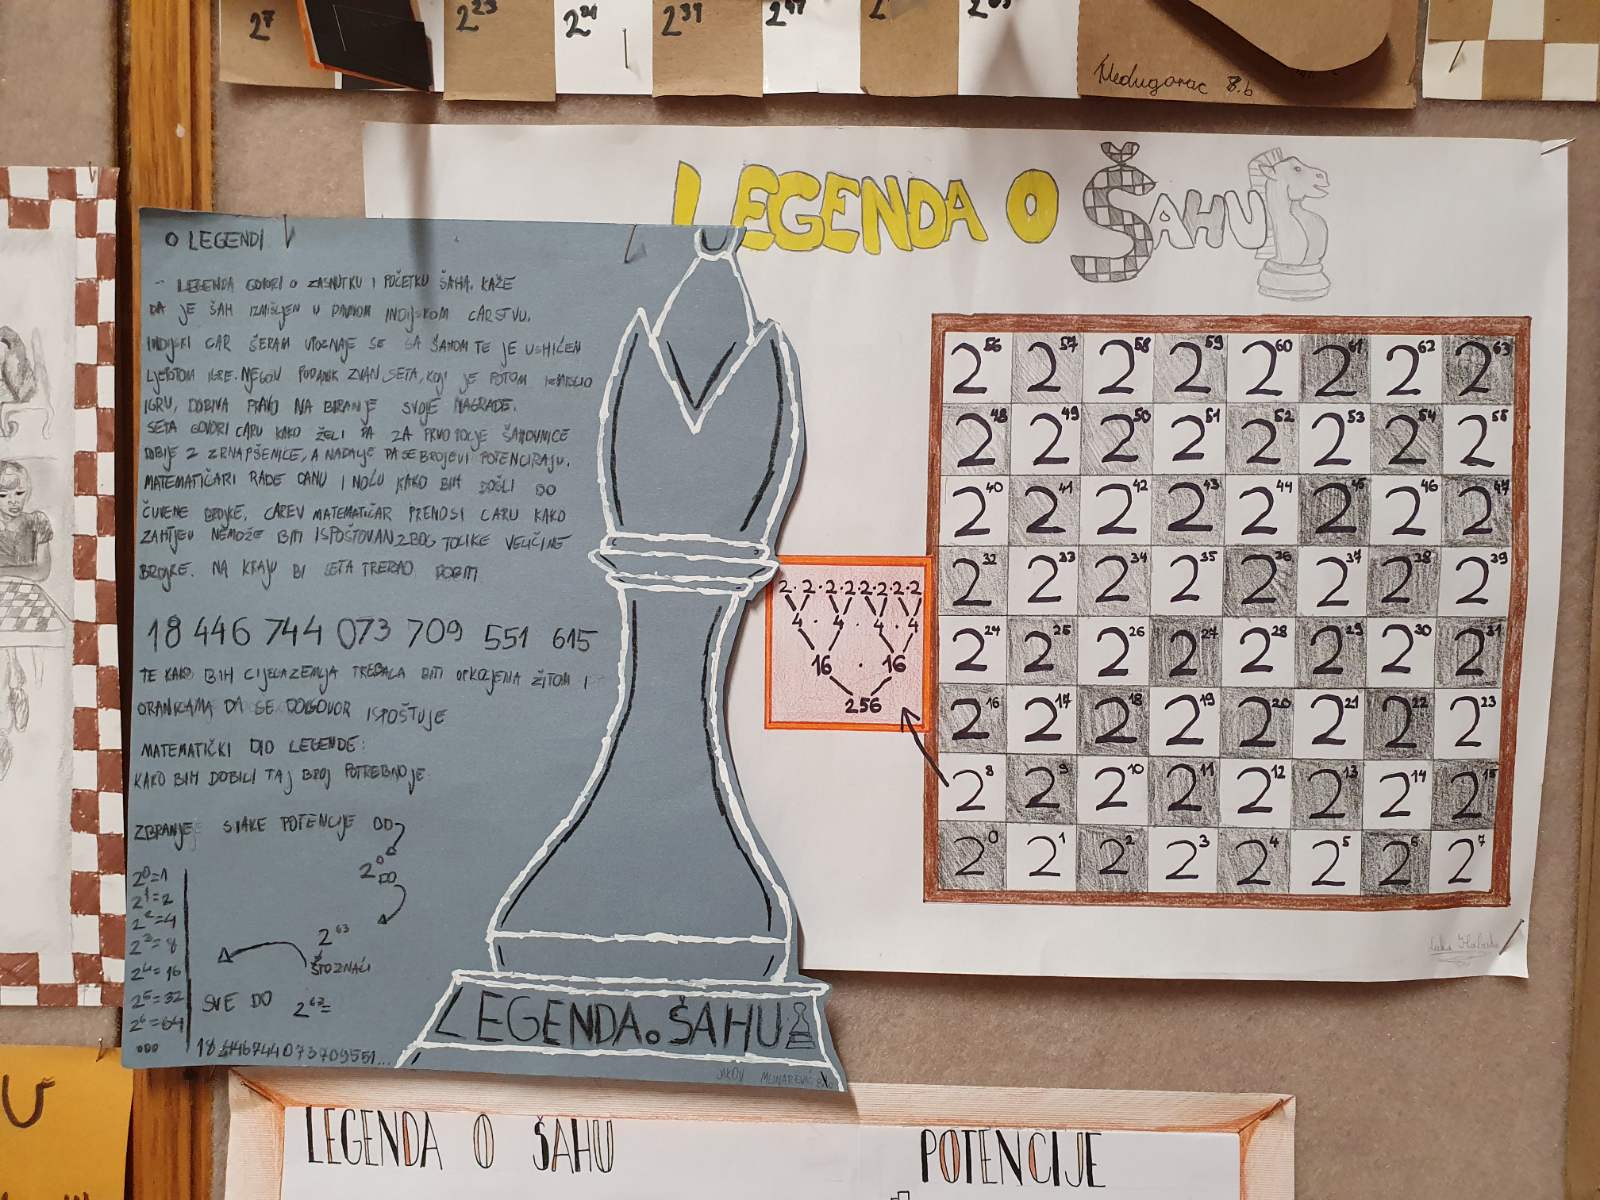 2⁷ 2²³ 2²⁴ 2³¹
Nedugorac 8.b
LEGENDA O ŠAHU
O LEGENDI
- LEGENDA GOVORI O ZASNUTKU I POČETKU ŠAHA. KAŽE
DA JE ŠAH IZMIŠLJEN U DAVNOM INDIJSKOM CARSTVU.
INDIJSKI CAR ŠERAM UPOZNAJE SE SA ŠAHOM TE JE USHIĆEN
LJEPOTOM IGRE. NJEGOV PODANIK ZVAN SETA, KOJI JE POTOM IZMISLIO
IGRU, DOBIVA PRAVO NA BIRANJE SVOJE NAGRADE.
SETA GOVORI CARU KAKO ŽELI DA ZA PRVO POLJE ŠAHOVNICE
DOBIJE 2 ZRNA PŠENICE, A NADALJE DA SE BROJEVI POTENCIRAJU.
MATEMATIČARI RADE DANU I NOĆU KAKO BIH DOŠLI DO
ČUVENE BROJKE. CAREV MATEMATIČAR PRENOSI CARU KAKO
ZAHTJEV NEMOŽE BITI ISPOŠTOVAN ZBOG TOLIKE VELIČINE
BROJKE. NA KRAJU BI SETA TREBAO DOBITI
18 446 744 073 709 551 615
TE KAKO BIH CIJELA ZEMLJA TREBALA BITI OPKOLJENA ŽITOM I
ORANICAMA DA SE DOGOVOR ISPOŠTUJE
MATEMATIČKI DIO LEGENDE:
KAKO BIH DOBILI TAJ BROJ POTREBNO JE
ZBRANJE SVAKE POTENCIJE OD
2⁰ DO
2⁶³
ŠTO ZNAČI
2⁰=1
2¹=2
2²=4
2³=8
2⁴=16
2⁵=32
2⁶=64
...
SVE DO 2⁶³=
18 446744073709551...
LEGENDA O ŠAHU
JAKOV MLINAREVIĆ
2·2·2·2·2·2·2·2
4 · 4 · 4 · 4
16 · 16
256
2⁵⁶ 2⁵⁷ 2⁵⁸ 2⁵⁹ 2⁶⁰ 2⁶¹ 2⁶² 2⁶³
2⁴⁸ 2⁴⁹ 2⁵⁰ 2⁵¹ 2⁵² 2⁵³ 2⁵⁴ 2⁵⁵
2⁴⁰ 2⁴¹ 2⁴² 2⁴³ 2⁴⁴ 2⁴⁵ 2⁴⁶ 2⁴⁷
2³² 2³³ 2³⁴ 2³⁵ 2³⁶ 2³⁷ 2³⁸ 2³⁹
2²⁴ 2²⁵ 2²⁶ 2²⁷ 2²⁸ 2²⁹ 2³⁰ 2³¹
2¹⁶ 2¹⁷ 2¹⁸ 2¹⁹ 2²⁰ 2²¹ 2²² 2²³
2⁸ 2⁹ 2¹⁰ 2¹¹ 2¹² 2¹³ 2¹⁴ 2¹⁵
2⁰ 2¹ 2² 2³ 2⁴ 2⁵ 2⁶ 2⁷
LEGENDA O ŠAHU
POTENCIJE